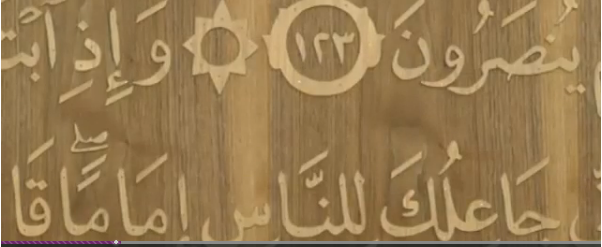 يُنصَرُونَ ١٢٣ ۞ وَإِذِ ٱبْتَ
جَاعِلُكَ لِلنَّاسِ إِمَامًاۖ قَا